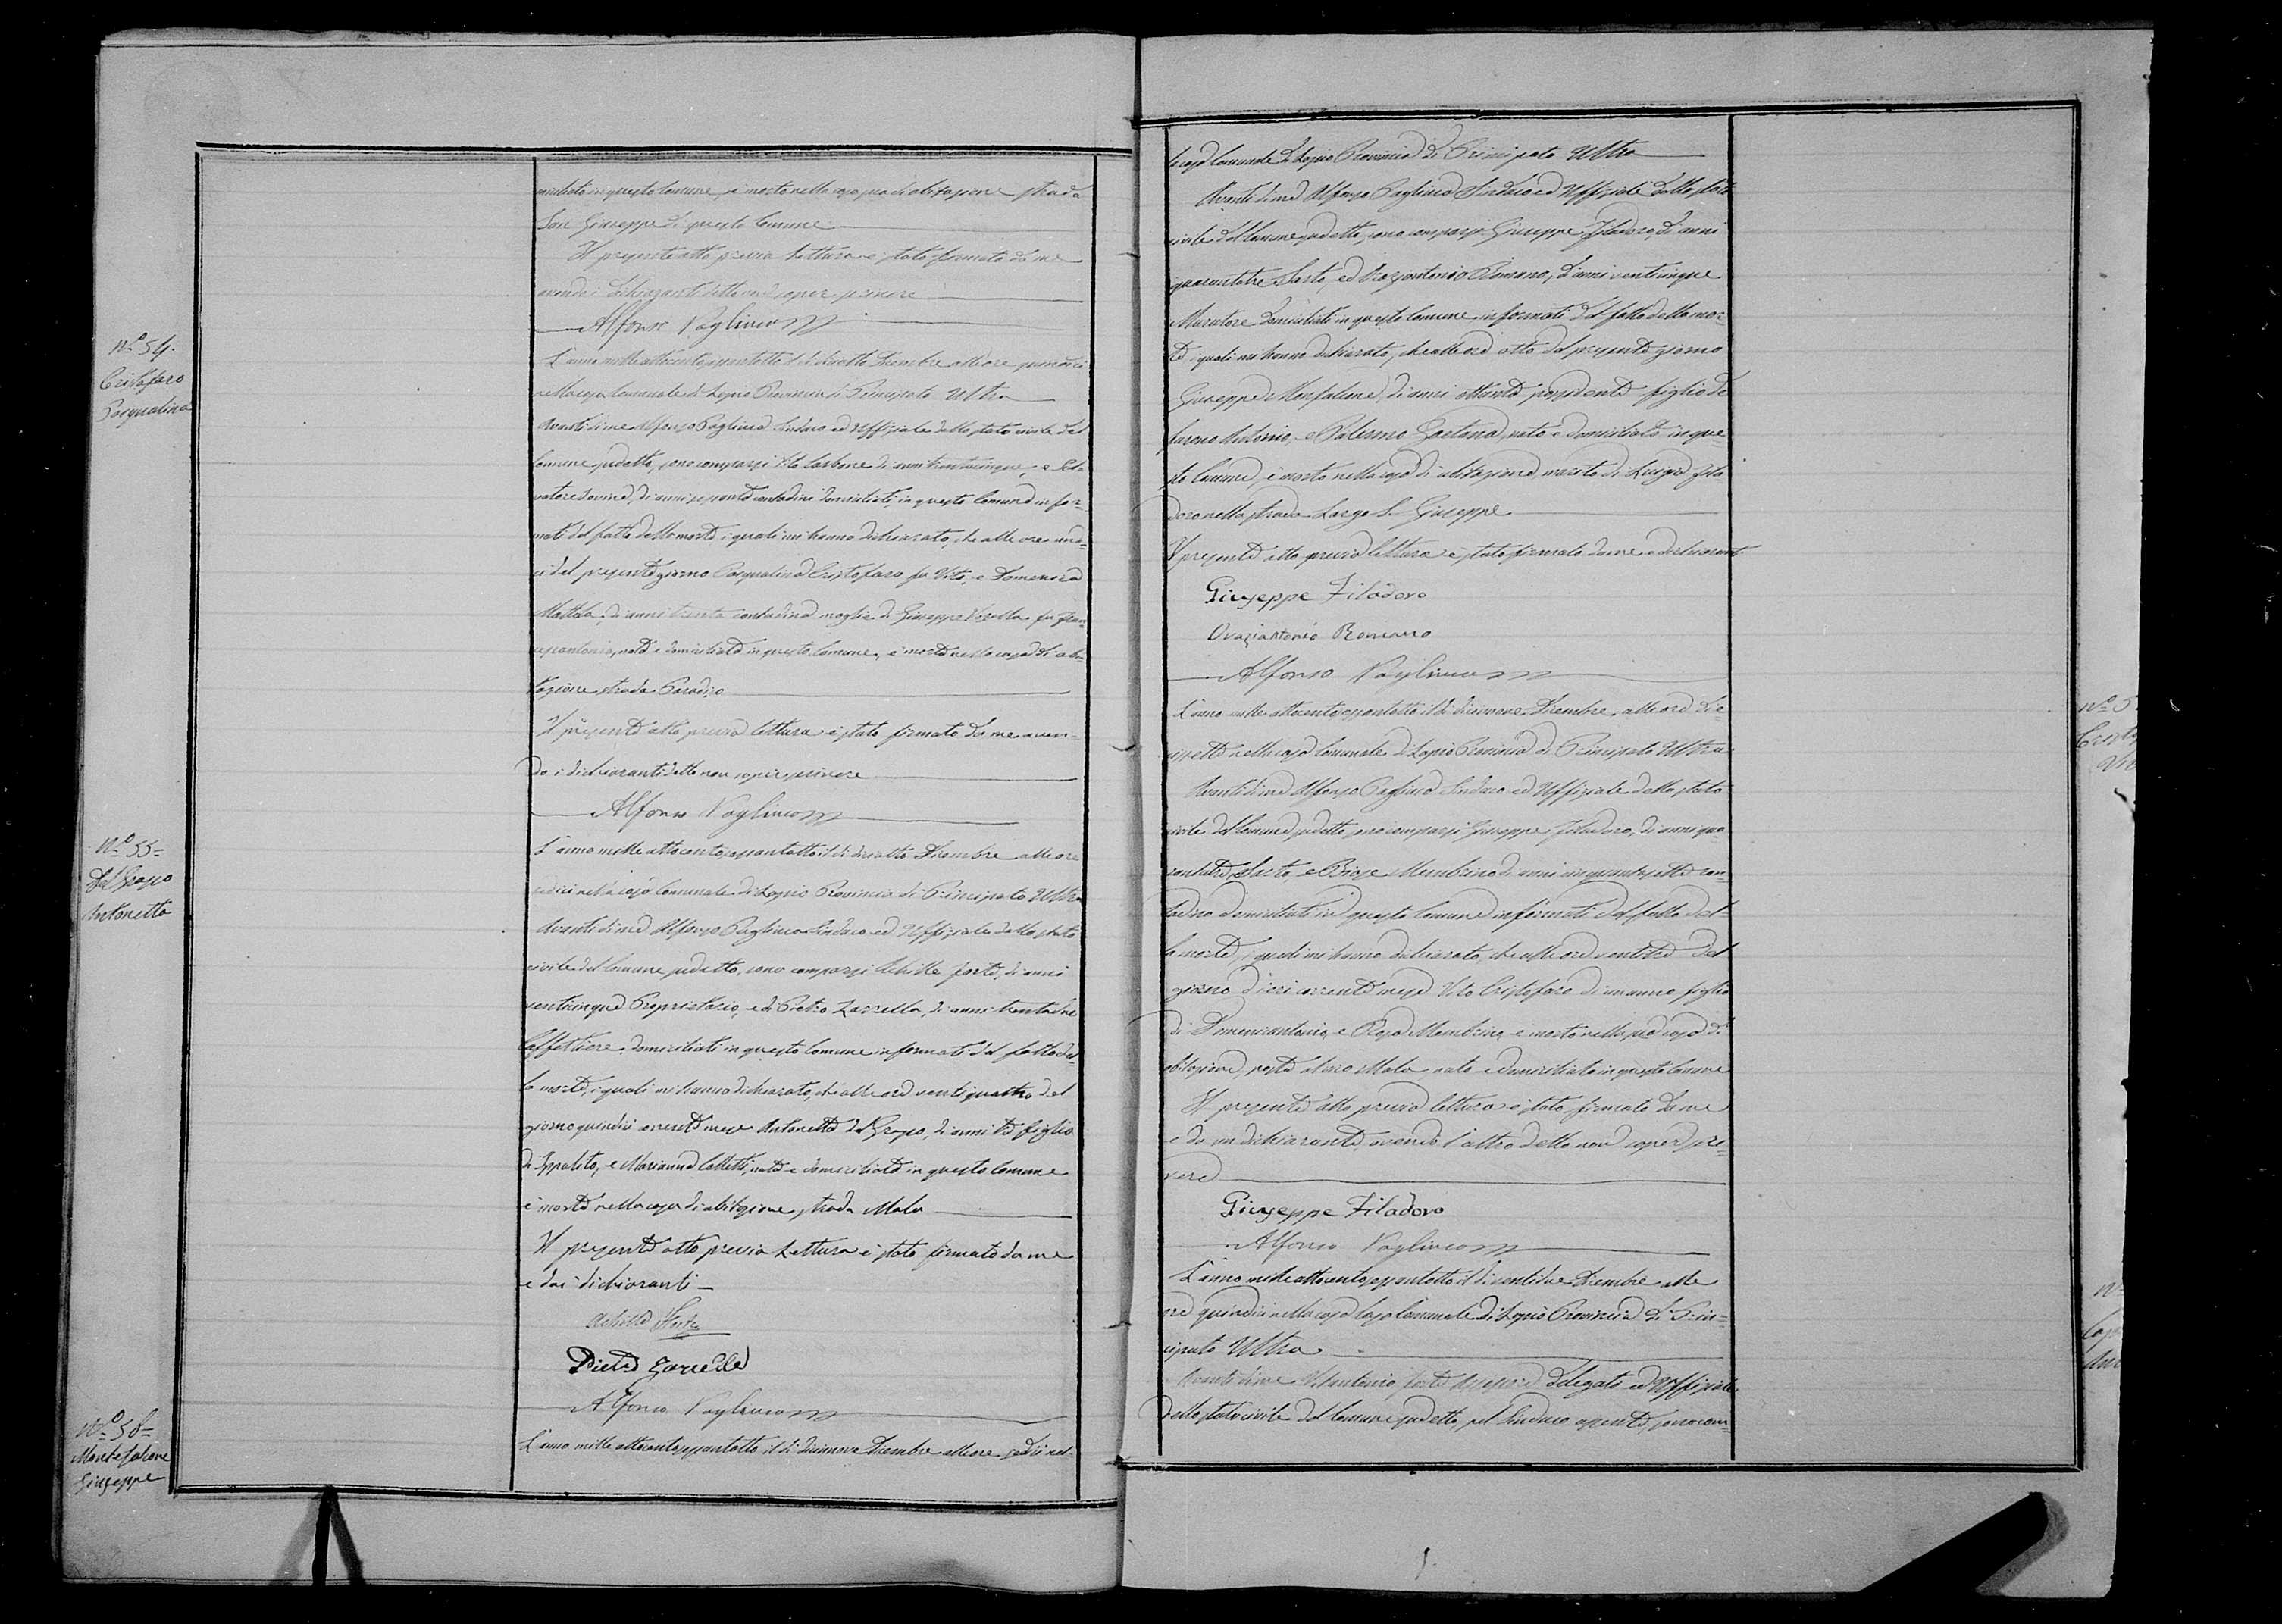 miciliato in questo Comune, è morto nella casa sua di abitazione strada
San Giuseppe di questo Comune
Il presente atto previa lettura è stato firmato da me
avendo i dichiaranti detto non saper scrivere
Alfonso Pagliuca
Nº 54.
Cristofaro
Pasqualina
L'anno mille ottocento sessantotto il dì diciotto Dicembre alle ore quindici
nella casa Comunale di Lapio Provincia di Principato Ultra
Avanti di me Alfonso Pagliuca Sindaco ed Uffiziale dello stato civile del
Comune sudetto, sono comparsi Vito Carbone di anni trentacinque, e Sal-
vatore di anni sessanta contadini domiciliati in questo Comune infor-
mati del fatto della morte i quali mi hanno dichiarato, che alle ore undi-
ci del presente giorno Pasqualina Cristofaro fu Vito, e Domenica
di anni trenta contadina moglie di Giuseppe fu Fran-
cescantonio, nata e domiciliata in questo Comune, è morta nella casa di abi-
tazione strada Paradiso
Il presente atto previa lettura è stato firmato da me aven-
do i dichiaranti detto non saper scrivere
Alfonso Pagliuca
Nº 55=
Del Grosso
Antonetta
L'anno mille ottocento sessantotto il dì diciotto Dicembre alle ore
sedici nella casa Comunale di Lapio Provincia di Principato Ultra
Avanti di me Alfonso Pagliuca Sindaco ed Uffiziale dello stato
civile del Comune sudetto, sono comparsi Achille Forte, di anni
venticinque Proprietario, e di Pietro Zarrella, di anni trentadue
Caffettiere, domiciliati in questo Comune informati del fatto del-
la morte, i quali mi hanno dichiarato, che alle ore ventiquattro del
giorno quindici corrente mese Antonetta del Grosso, di anni tre figlia
di Ippolito, e Marianna nata e domiciliata in questo Comune
è morta nella casa di abitazione, strada Mala
Il presente atto previa lettura è stato firmato da me
e dai dichiaranti
Achille Forte
Pietro Zarrella
Alfonso Pagliuca
Nº 56=
Montefalcone
Giuseppe
L'anno mille ottocento sessantotto il dì diecinove Dicembre alle ore sedici nel-
la casa Comunale di Lapio Provincia di Principato Ultra
Avanti di me Alfonso Pagliuca Sindaco ed Uffiziale dello stato
civile del Comune sudetto, sono comparsi Giuseppe Filadoro, di anni
quarantatre Sarto, ed Oraziantonio Romano, d'anni venticinque
Muratore domiciliati in questo Comune informati del fatto della mor-
te, i quali mi hanno dichiarato, che alle ore otto del presente giorno
Giuseppe Monfalcone, di anni ottanta possidente figlio de
furono Antonio, e Palermo Gaetana, nato e domiciliato in que-
sto Comune, è morto nella casa di abitazione, marito di Luigia Fila
doro nella strada Largo S. Giuseppe
Il presente atto previa lettura è stato firmato da me e dichiaranti
Giuseppe Filadoro
Oraziantonio Romano
Alfonso Pagliuca
Nº 5
L'anno mille ottocento sessantotto il dì diecinove Dicembre, alle ore die-
cissette nella casa Comunale di Lapio Provincia di Principato Ultra
Avanti di me Alfonso Pagliuca Sindaco ed Uffiziale dello stato
civile del Comune sudetto sono comparsi Giuseppe Filadoro, di anni qua-
rantatre, Sarto, e Biase Membrino di anni cinquantasette con-
tadino domiciliati in questo Comune informati del fatto del-
la morte, i quali mi hanno dichiarato, che alle ore ventitre del
giorno dieci corrente mese Vito Cristofaro di un anno figlio
di Domenicantonio, e Rosa Membrino, è morto nella sua casa di
abitazione, nato e domiciliato in questo Comune
Il presente atto previa lettura è stato firmato da me
e da un dichiarante, avendo l'altro detto non saper scri-
vere
Giuseppe Filadoro
Alfonso Pagliuca
L'anno mille ottocento sessantotto il dì ventidue Dicembre alle
ore quindici nella casa casa Comunale di Lapio Provincia di Prin=
cipato Ultra
Avanti di me Vitantonio Forte Assessore Delegato ed Uffiziale
dello stato civile del Comune sudetto, pel Sindaco assente, sono com-